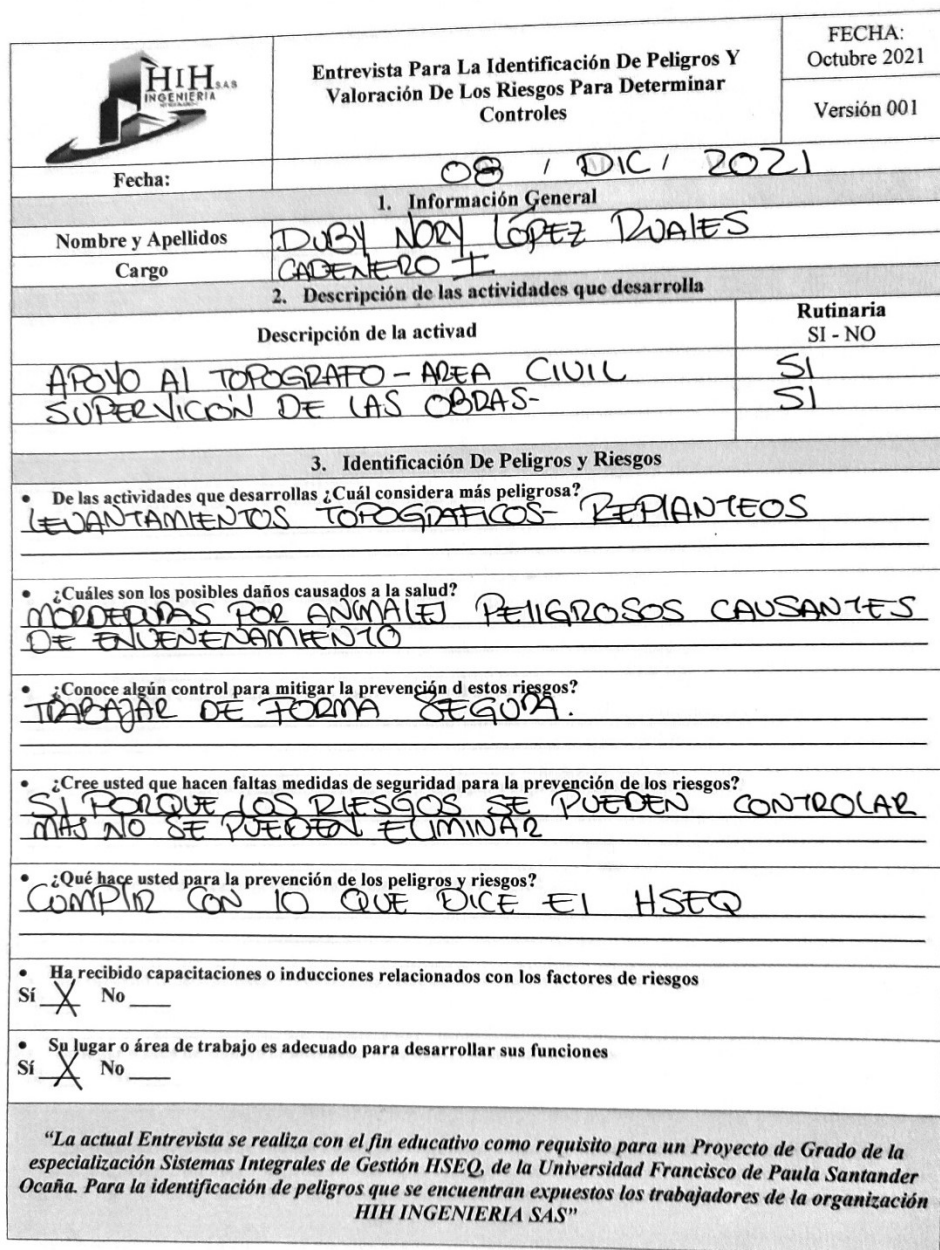 HIH S.A.S
INGENIERIA
Entrevista Para La Identificación De Peligros Y
Valoración De Los Riesgos Para Determinar
Controles
FECHA:
Octubre 2021
Versión 001
Fecha: 08 / DIC / 2021
1. Información General
Nombre y Apellidos DUBY NORY LÓPEZ RUALES
Cargo CADENERO I
2. Descripción de las actividades que desarrolla
Descripción de la activad
Rutinaria
SI - NO
APOYO Al TOPOGRAFO - AREA CIVIL SI
SUPERVICIÓN DE LAS OBRAS- SI
3. Identificación De Peligros y Riesgos
• De las actividades que desarrollas ¿Cuál considera más peligrosa?
LEVANTAMIENTOS TOPOGRAFICOS- REPlANTEOS
• ¿Cuáles son los posibles daños causados a la salud?
MORDEDURAS POR ANIMALES PElIGROSOS CAUSANTES
DE ENVENENAMIENTO
• ¿Conoce algún control para mitigar la prevención d estos riesgos?
TRABAJAR DE FORMA SEGURA.
• ¿Cree usted que hacen faltas medidas de seguridad para la prevención de los riesgos?
SI PORQUE LOS RIESGOS SE PUEDEN CONTROLAR
MAS NO SE PUEDEN ELIMINAR
• ¿Qué hace usted para la prevención de los peligros y riesgos?
CUMPlIR CON lO QUE DICE El HSEQ
• Ha recibido capacitaciones o inducciones relacionados con los factores de riesgos
Sí X No ___
• Su lugar o área de trabajo es adecuado para desarrollar sus funciones
Sí X No ___
"La actual Entrevista se realiza con el fin educativo como requisito para un Proyecto de Grado de la
especialización Sistemas Integrales de Gestión HSEQ, de la Universidad Francisco de Paula Santander
Ocaña. Para la identificación de peligros que se encuentran expuestos los trabajadores de la organización
HIH INGENIERIA SAS"